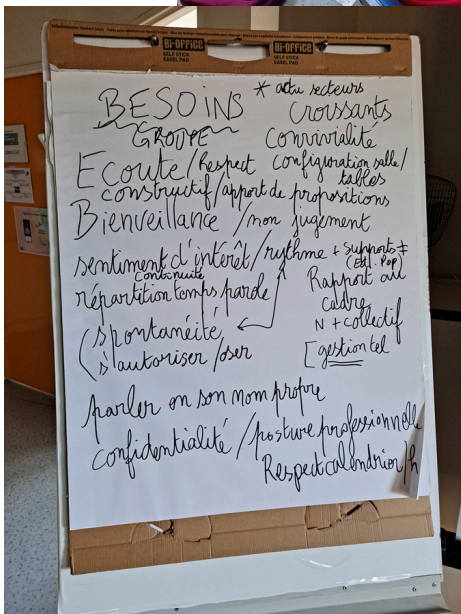 Bi-OFFiCE
SELF STICK
EASEL PAD
Bi-OFFiCE
SELF STICK
EASEL PAD
BESOINS
GROUPE
* actu secteurs
Croissants
Convivialité
Configuration salle/
tables
Ecoute/Respect
constructif/apport de propositions
Bienveillance/non jugement
sentiment d'intérêt/rythme + supports ≠
(Ed. Pop)
Continuité
répartition temps parole
Rapport au
cadre
N + collectif
[gestion tel
(spontanéité
s'autoriser/oser
parler en son nom propre
confidentialité/posture professionnelle
Respect calendrier/h